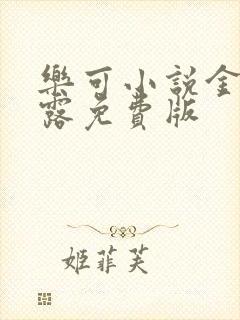 樂可小說金
露免費版
姬菲芙